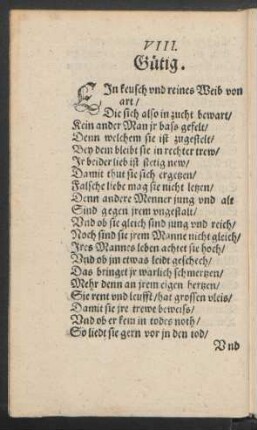 VIII.
Gütig.
EIn keusch vnd reines Weib von
art/
Die sich also in zucht bewart/
Kein ander Man jr bass gefelt/
Denn welchem sie ist zugestelt/
Bey dem bleibt sie in rechter trew/
Jr beider lieb ist stetig new/
Damit thut sie sich ergetzen/
Falsche liebe mag sie nicht letzen/
Denn andere Menner jung vnd alt
Sind gegen jrem vngestalt/
Vnd ob sie gleich sind jung vnd reich/
Noch sind sie jrem Manne nicht gleich/
Jres Mannes leben achtet sie hoch/
Vnd ob jm etwas leidt geschech/
Das bringet jr warlich schmertzen/
Mehr denn an jrem eigen hertzen/
Sie rent vnd leufft/hat grossen vleis/
Damit sie jre trewe beweiss/
Vnd ob er kem in todes noth/
So liedt sie gern vor jn den tod/
Vnd